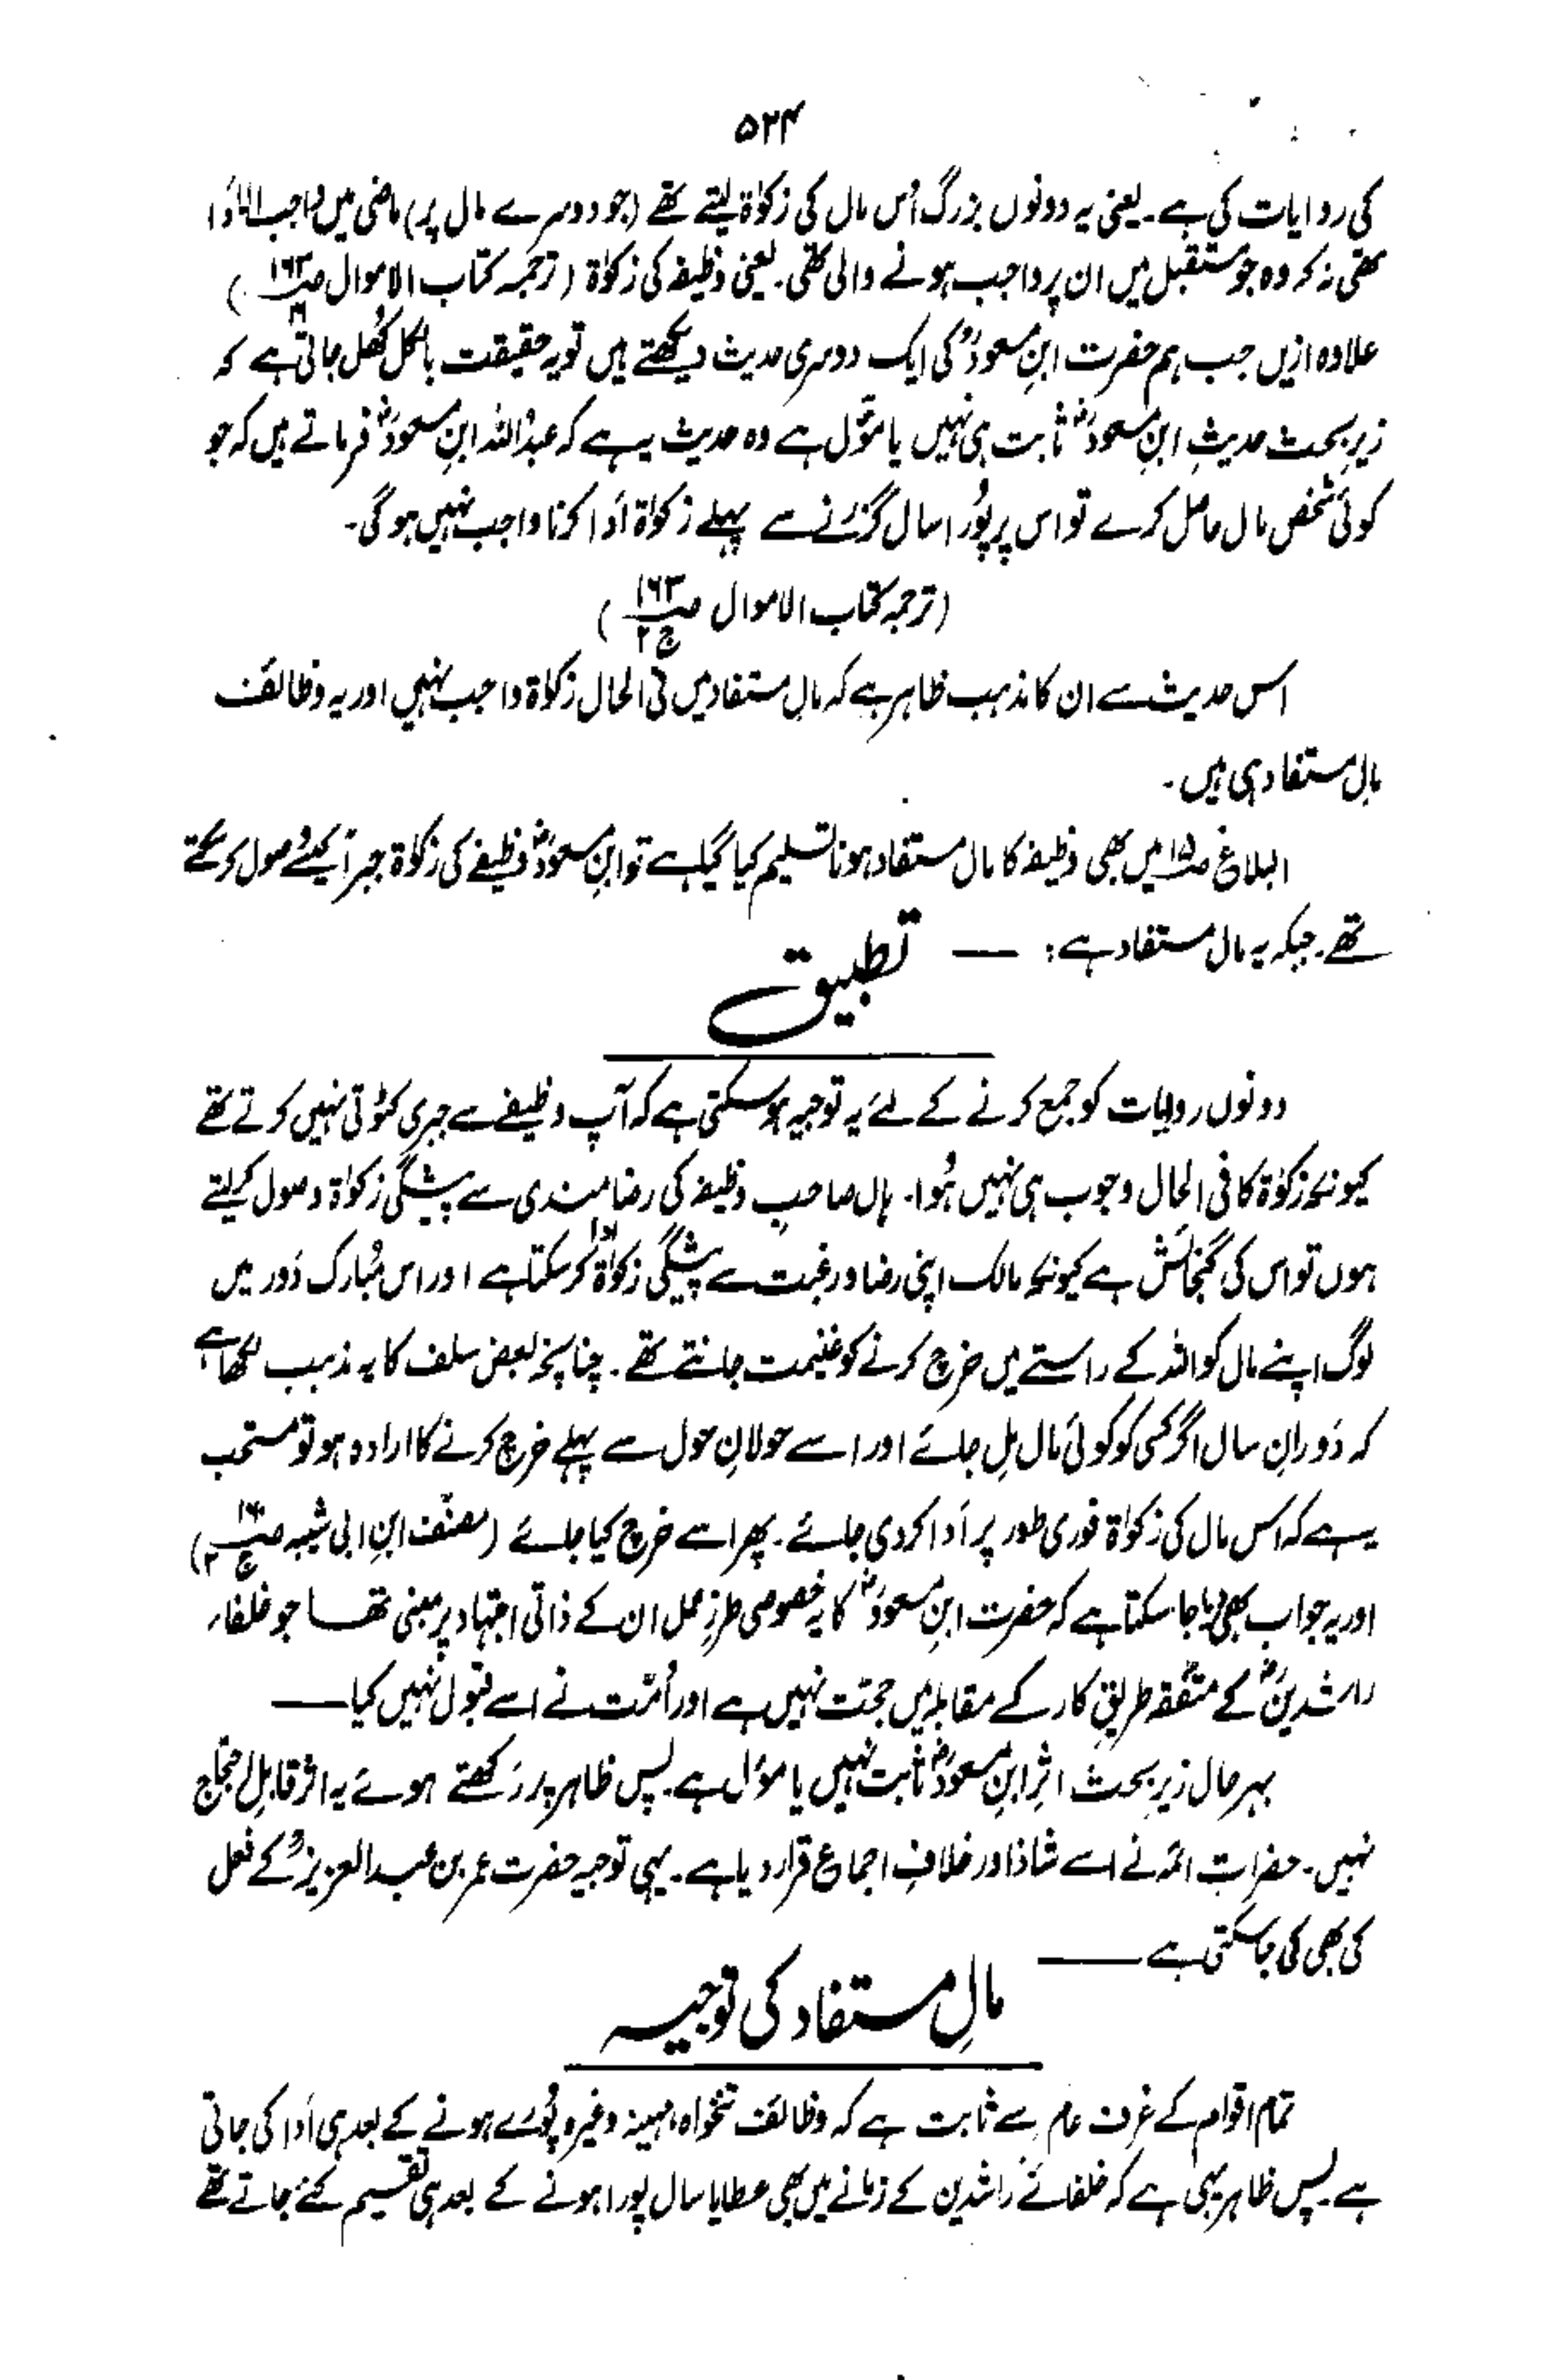 ۵۲۴
کی روایات کی ہے۔ یعنی یہ دونوں بزرگ اُس مال کی زکوٰۃ لیتے تھے (جو دوسرے مال پر) ماضی میں واجب الاَدَا
تھی نہ کہ وہ جو مستقبل میں ان پر واجب ہونے والی تھی۔ یعنی وظیفہ کی زکوٰۃ (ترجمہ کتاب الاموال صـ ۱۶۳ )
علاوہ ازیں جب ہم حضرت ابنِ مسعودؓ کی ایک دوسری حدیث دیکھتے ہیں تو یہ حقیقت بالکل کُھل جاتی ہے کہ
زیرِ بحث حدیثِ ابنِ مسعودؓ ثابت ہی نہیں یا مؤَّل ہے وہ حدیث یہ ہے کہ عبدُاللہ ابنِ مسعودؓ فرماتے ہیں کہ جو
کوئی شخص مال حاصل کرے تو اس پر پُورا سال گزرنے سے پہلے زکوٰۃ اَدَا کرنا واجب نہیں ہوگی۔
(ترجمہ کتاب الاموال صـ ۱۶۳ ج ۲)
اس حدیث سے ان کا مذہب ظاہر ہے کہ مالِ مستفاد میں فی الحال زکوٰۃ واجب نہیں اور یہ وظائف
مالِ مستفاد ہی ہیں۔
البلاغ صـ ۱۵ میں بھی وظیفہ کا مال مستفاد ہونا تسلیم کیا گیا ہے تو ابنِ مسعودؓ وظیفے کی زکوٰۃ جبراً کیسے وصول کر سکتے
تھے۔ جبکہ یہ مال مستفاد ہے: —
تطبیق
دونوں روایات کو جمع کرنے کے لئے یہ توجیہ ہو سکتی ہے کہ آپ وظیفے سے جبری کٹوتی نہیں کرتے تھے
کیونکہ زکوٰۃ کا فی الحال وجوب ہی نہیں ہُوا۔ ہاں صاحبِ وظیفہ کی رضامندی سے پیشگی زکوٰۃ وصول کر لیتے
ہوں تو اس کی گنجائش ہے کیونکہ مالک اپنی رضا و رغبت سے پیشگی زکوٰۃ ادا کر سکتا ہے اور اس مُبارک دَور میں
لوگ اپنے مال کو اللہ کے راستے میں خرچ کرنے کو غنیمت جانتے تھے۔ چنانچہ بعض سلف کا یہ مذہب لکھا ہے
کہ دَورانِ سال اگر کسی کو کوئی مال مِل جائے اور اسے حولانِ حول سے پہلے خرچ کرنے کا ارادہ ہو تو مستحب
یہ ہے کہ اس مال کی زکوٰۃ فوری طور پر اَدا کر دی جائے۔ پھر اسے خرچ کیا جائے (مصنّف ابنِ ابی شیبہ صـ ج )
اور یہ جواب بھی دیا جا سکتا ہے کہ حضرت ابنِ مسعودؓ کا یہ خصوصی طرزِ عمل ان کے ذاتی اجتہاد پر مبنی تھا جو خلفاء
راشدینؓ کے متفقہ طریقِ کار کے مقابلہ میں حجّت نہیں ہے اور اُمّت نے اسے قبول نہیں کیا —
بہرحال زیرِ بحث اثرِ ابنِ مسعودؓ ثابت نہیں یا مؤل ہے۔ پس ظاہر پر رکھتے ہوئے یہ اثر قابلِ احتجاج
نہیں۔ حضراتِ ائمہ نے اسے شاذ اور خلافِ اجماع قرار دیا ہے۔ یہی توجیہ حضرت عمر بن عبدالعزیزؒ کے فعل
کی بھی کی جا سکتی ہے —
مالِ مستفاد کی توجیہ
تمام اقوام کے عُرف عام سے ثابت ہے کہ وظائف تنخواہ، مہینہ وغیرہ پُورے ہونے کے بعد ہی اَدا کی جاتی
ہے۔ پس ظاہر یہی ہے کہ خلفائے راشدین کے زمانے میں بھی عطایا سال پورا ہونے کے بعد ہی تقسیم کئے جاتے تھے